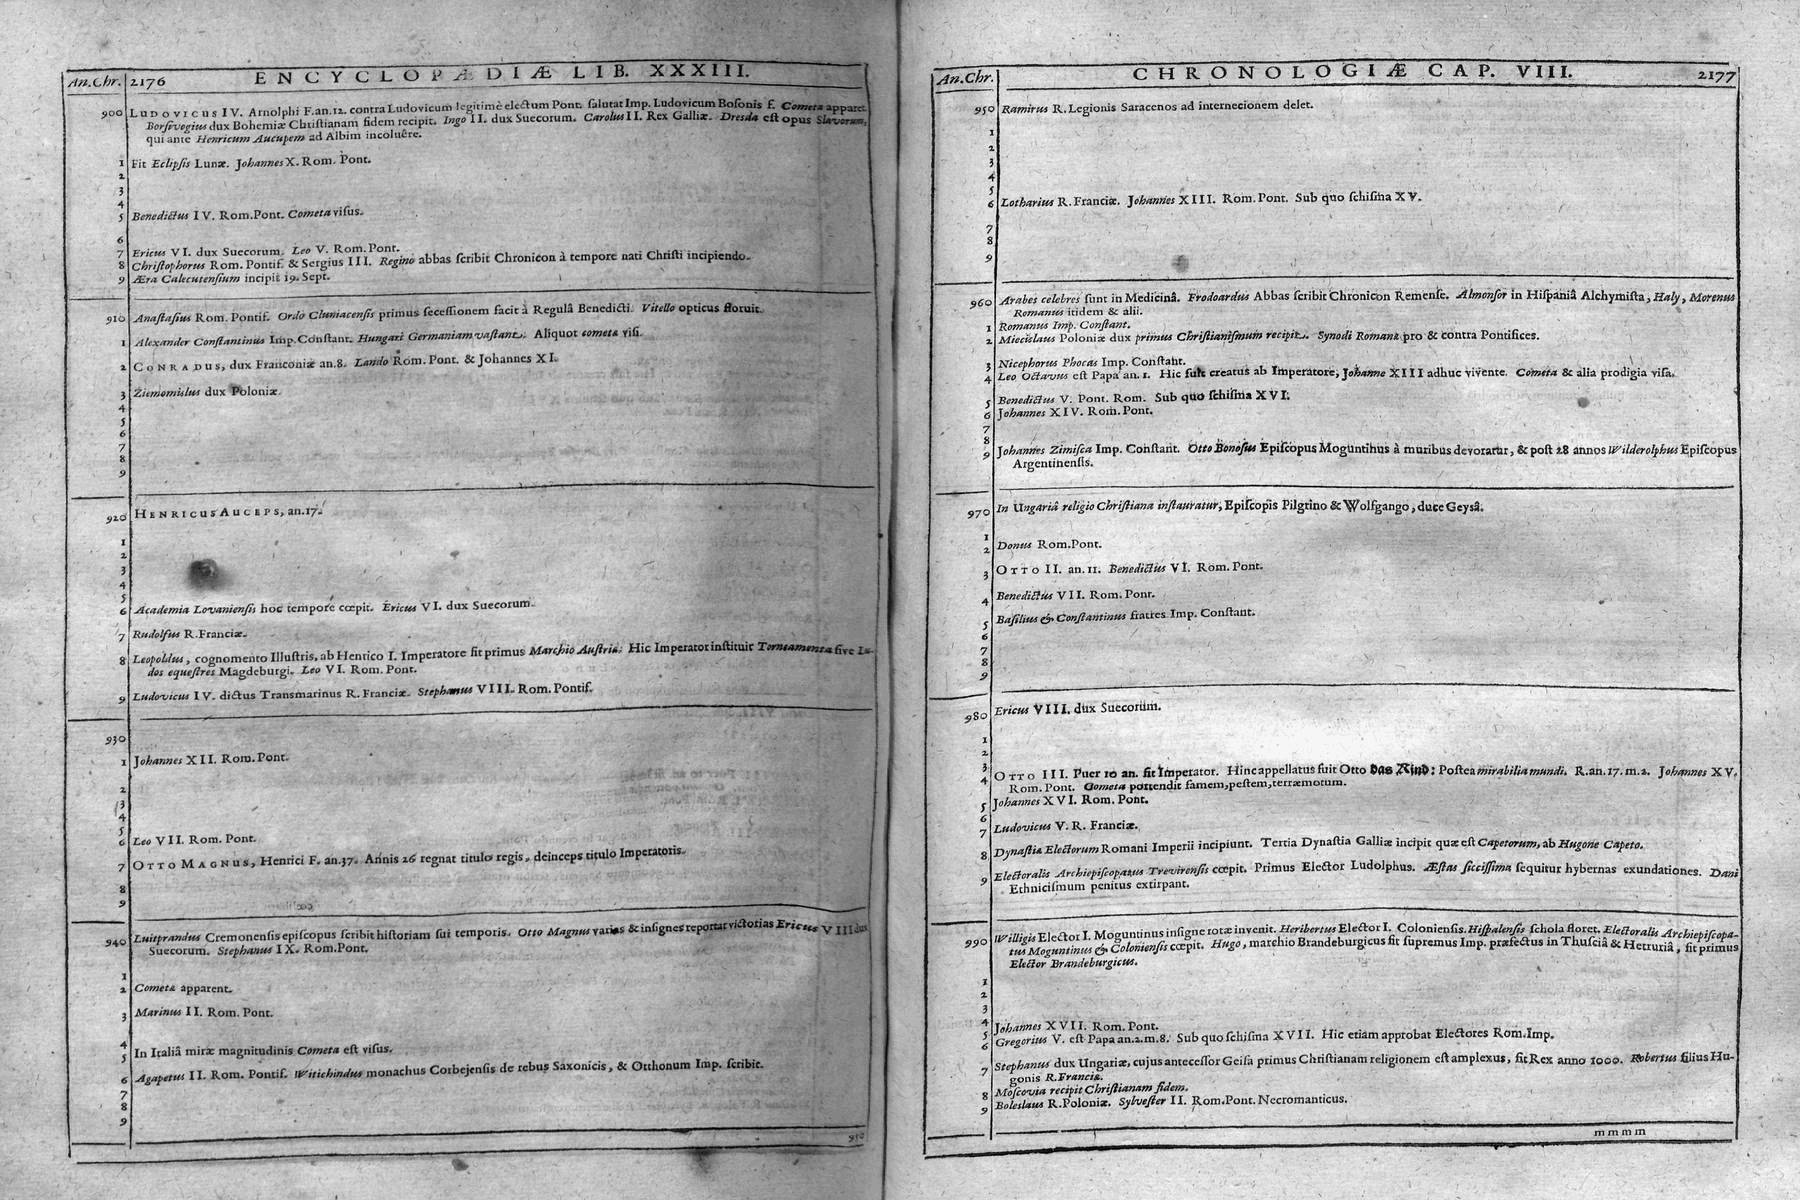 An.Chr. 2176 ENCYCLOPÆDIÆ LIB. XXXIII.
900 LUDOVICUS IV. Arnolphi F.an.12. contra Ludovicum legitimè electum Pont. salutat Imp. Ludovicum Bosonis f. Cometa apparet.
Borsivegius dux Bohemiæ Christianam fidem recipit. Ingo II. dux Suecorum. Carolus II. Rex Galliæ. Dresda est opus Slavorum,
qui ante Henricum Aucupem ad Albim incoluêre.
1 Fit Eclipsis Lunæ. Johannes X. Rom. Pont.
2
3
4
5 Benedictus IV. Rom.Pont. Cometa visus.
6
7 Ericus VI. dux Suecorum. Leo V. Rom.Pont.
8 Christophorus Rom. Pontif. & Sergius III. Regino abbas scribit Chronicon à tempore nati Christi incipiendo.
9 Æra Calecutensium incipit 19. Sept.
910 Anastasius Rom. Pontif. Ordo Cluniacensis primus secessionem facit à Regulâ Benedicti. Vitello opticus floruit.
1 Alexander Constantinus Imp.Constant. Hungari Germaniam vastant. Aliquot cometæ visi.
2 CONRADUS, dux Franconiæ an.8. Lando Rom. Pont. & Johannes XI.
3 Ziemomislus dux Poloniæ.
4
5
6
7
8
9
920 HENRICUS AUCEPS, an.17.
1
2
3
4
5
6 Academia Lovaniensis hoc tempore cœpit. Ericus VI. dux Suecorum.
7 Rudolfus R.Franciæ.
8 Leopoldus, cognomento Illustris, ab Henrico I. Imperatore fit primus Marchio Austriæ. Hic Imperator instituit Torneamenta sive Lu-
dos equestres Magdeburgi. Leo VI. Rom. Pont.
9 Ludovicus IV. dictus Transmarinus R. Franciæ. Stephanus VIII. Rom. Pontif.
930
1 Johannes XII. Rom. Pont.
2
3
4
5
6 Leo VII. Rom. Pont.
7 OTTO MAGNUS, Henrici F. an.37. Annis 26 regnat titulo regis, deinceps titulo Imperatoris.
8
9
940 Luitprandus Cremonensis episcopus scribit historiam sui temporis. Otto Magnus varias & insignes reportat victorias Ericus VIII dux
Suecorum. Stephanus IX. Rom.Pont.
1
2 Cometa apparent.
3 Marinus II. Rom. Pont.
4
5 In Italiâ miræ magnitudinis Cometa est visus.
6 Agapetus II. Rom. Pontif. Witichindus monachus Corbejensis de rebus Saxonicis, & Otthonum Imp. scribit.
7
8
9
950
An.Chr. CHRONOLOGIÆ CAP. VIII. 2177
950 Ramirus R. Legionis Saracenos ad internecionem delet.
1
2
3
4
5
6 Lotharius R. Franciæ. Johannes XIII. Rom. Pont. Sub quo schisma XV.
7
8
9
960 Arabes celebres sunt in Medicinâ. Frodoardus Abbas scribit Chronicon Remense. Almonsor in Hispaniâ Alchymista, Haly, Morenus
Romanus itidem & alii.
1 Romanus Imp. Constant.
2 Miecislaus Poloniæ dux primus Christianismum recipit. Synodi Romanæ pro & contra Pontifices.
3 Nicephorus Phocas Imp. Constant.
4 Leo Octavus est Papa an. 1. Hic fuit creatus ab Imperatore, Johanne XIII adhuc vivente. Cometa & alia prodigia visa.
5 Benedictus V. Pont. Rom. Sub quo schisma XVI.
6 Johannes XIV. Rom. Pont.
7
8
9 Johannes Zimisca Imp. Constant. Otto Bonosus Episcopus Moguntinus à muribus devoratur, & post 28 annos Wilderolphus Episcopus
Argentinensis.
970 In Ungariâ religio Christiana instauratur, Episcopis Pilgrino & Wolfgango, duce Geysâ.
1
2 Donus Rom.Pont.
3 OTTO II. an.11. Benedictus VI. Rom. Pont.
4 Benedictus VII. Rom. Pont.
5 Basilius & Constantinus fratres Imp. Constant.
6
7
8
9
980 Ericus VIII. dux Suecorum.
1
2
3
4 OTTO III. Puer 10 an. fit Imperator. Hinc appellatus fuit Otto das Kind: Postea mirabilia mundi. R.an.17.m.2. Johannes XV.
Rom. Pont. Cometa portendit famem, pestem, terræmotum.
5 Johannes XVI. Rom. Pont.
6
7 Ludovicus V. R. Franciæ.
8 Dynastia Electorum Romani Imperii incipiunt. Tertia Dynastia Galliæ incipit quæ est Capetorum, ab Hugone Capeto.
9 Electoralis Archiepiscopatus Trevirensis cœpit. Primus Elector Ludolphus. Æstas siccissima sequitur hybernas exundationes. Dani
Ethnicismum penitus extirpant.
990 Willigis Elector I. Moguntinus insigne rotæ invenit. Heribertus Elector I. Coloniensis. Hispalensis schola floret. Electoralis Archiepiscopa-
tus Moguntinus & Coloniensis cœpit. Hugo, marchio Brandeburgicus fit supremus Imp. præfectus in Thusciâ & Hetruriâ, fit primus
Elector Brandeburgicus.
1
2
3
4 Johannes XVII. Rom. Pont.
5 Gregorius V. est Papa an.2.m.8. Sub quo schisma XVII. Hic etiam approbat Electores Rom.Imp.
6
7 Stephanus dux Ungariæ, cujus antecessor Geisa primus Christianam religionem est amplexus, fit Rex anno 1000. Robertus filius Hu-
gonis R.Franciæ.
8 Moscovia recipit Christianam fidem.
9 Boleslaus R.Poloniæ. Sylvester II. Rom.Pont. Necromanticus.
m m m m